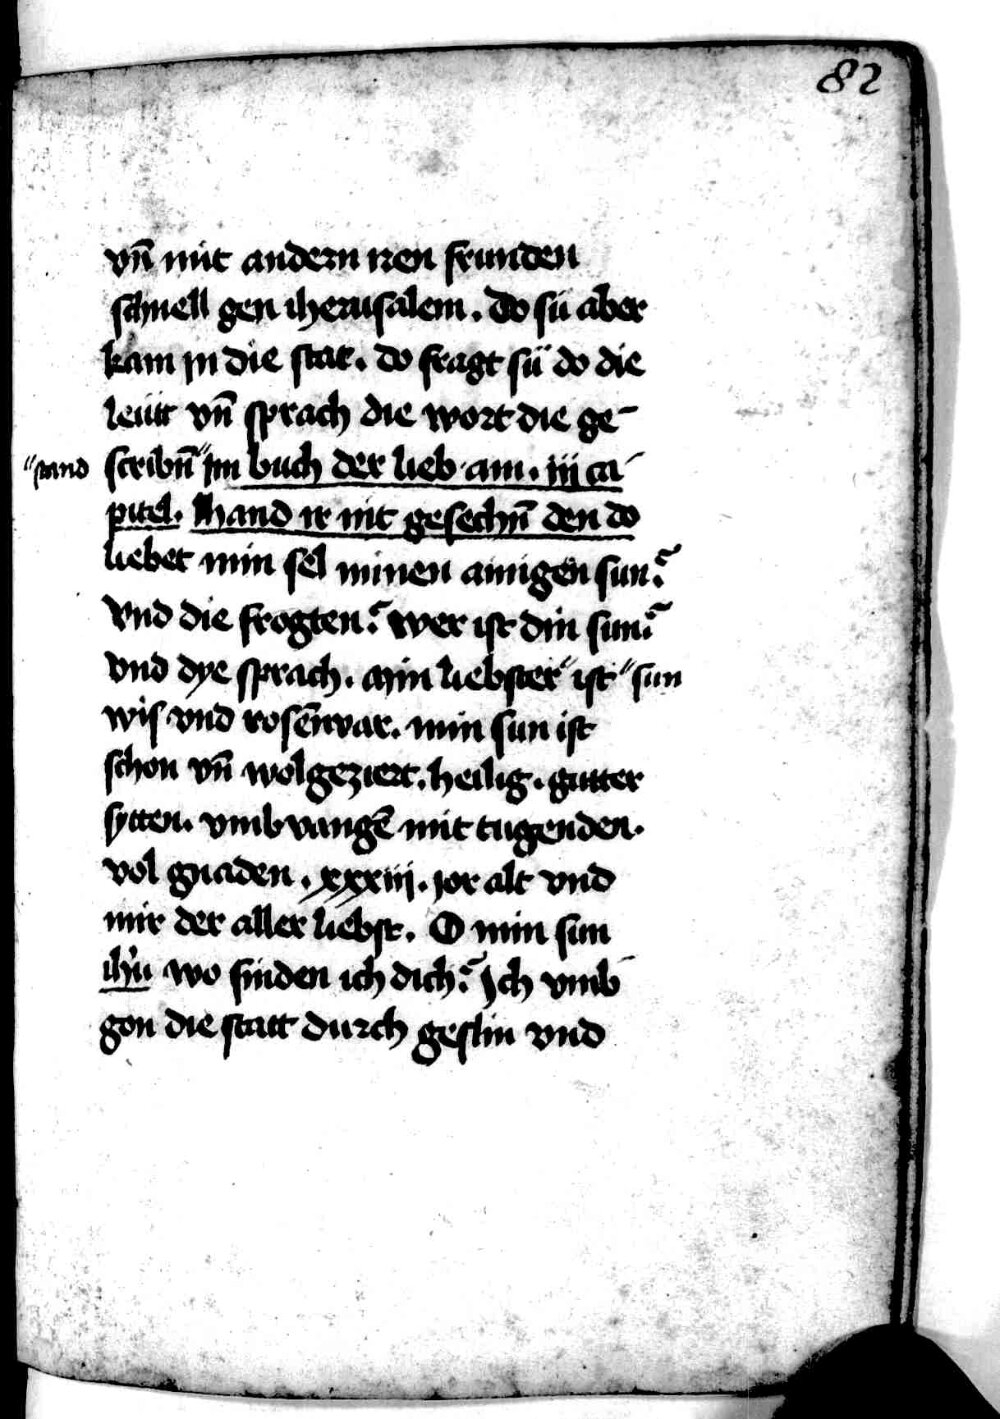 82
vn̄ mit andern iren frunden
schnell gen iherusalem. Do sü aber
kam in die stat. do fragt sü do die
leütt vn̄ sprach die wort die ge-
"stand scribn̄ "im buch der lieb am. iij ca-
pitel. Hand ir nit gesechn̄ den do
liebet min sel minen ainigen sun?
Vnd die frogten? Wer ist din sun?
vnd dye sprach. Min liebster "ist "sun
wis vnd rosēnvar. min sun ist
schon vn̄ wolgeziert. heilig. gutter
sytten. vmbvangē mit tugenden.
vol gnaden. xxxiij. jor alt vnd
mir der aller liebst. O min sun
ihū wo finden ich dich? Ich vmb-
gon die statt durch geslin vnd